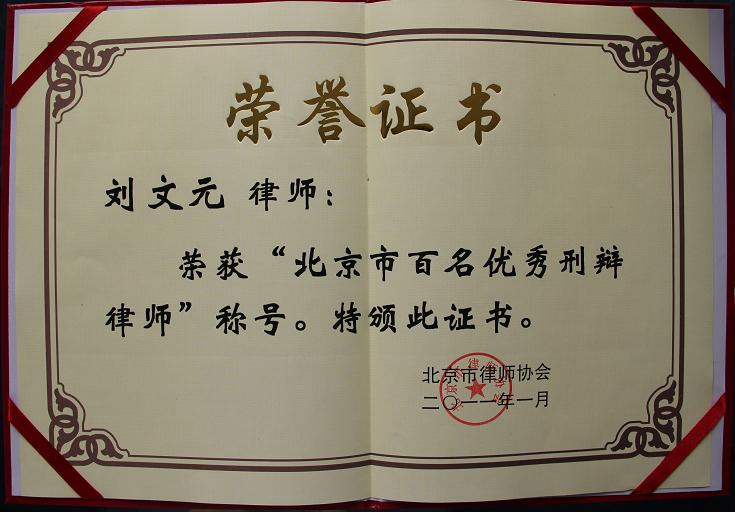 荣誉证书
刘文元 律师：
荣获“北京市百名优秀刑辩
律师”称号。特颁此证书。
北京市律师协会
二〇一一年一月